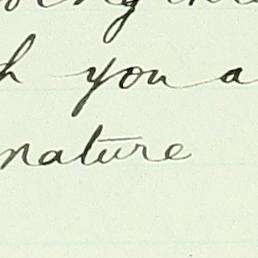 h you a
nature